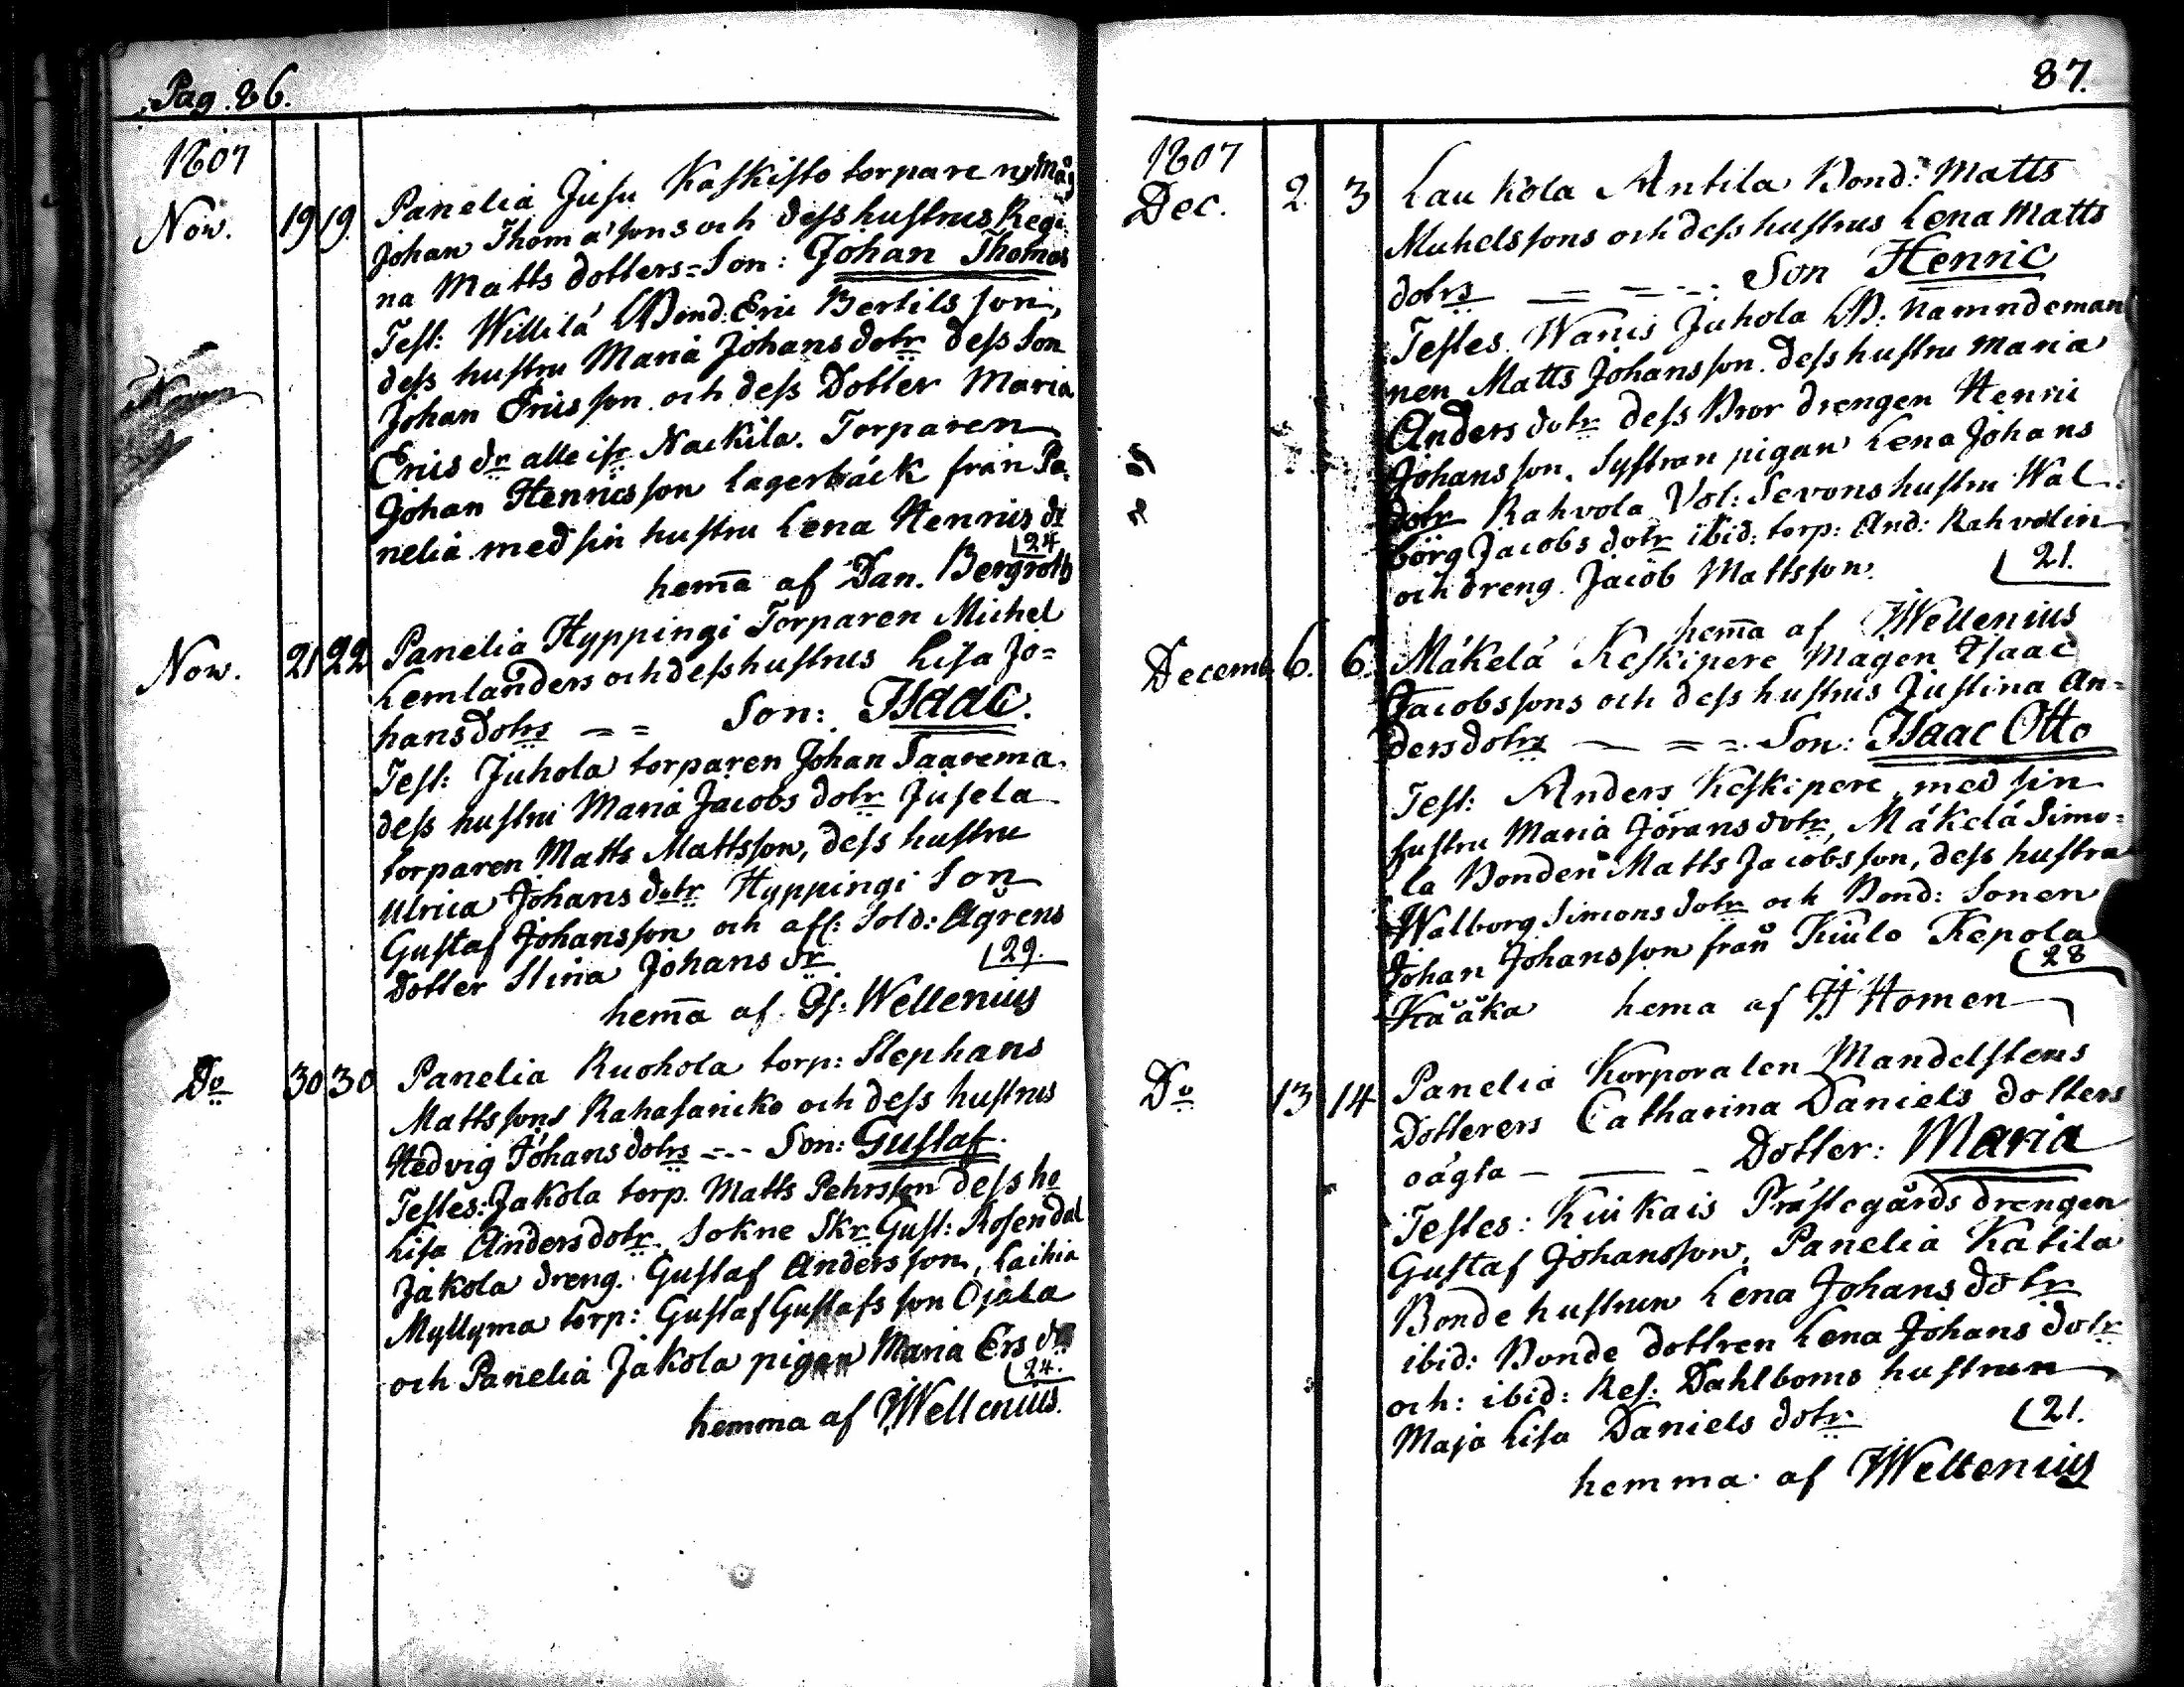 Pag. 86.
1807
Nov. 19 19. Panelia Jusu Kaskisto torpare
Johan Thomæ sons och dess hustrus Regi:
na Matts dotters = Son: Johan Thomas
Test: Willilä Bond: Eric Bertils son,
dess hustru Maria Johans dotr dess Son
Johan Ericsson och dess Dotter Maria
Erics dr alle ifr Nackila. Torparen
Johan Henricsson Lagerbäck från Pa-
nelia med sin hustru Lena Henrics dr
24
hem̄a af Dan. Bergroth
Nov. 21 22 Panelia Hyppingi Torparen Michel
Lemlanders och dess hustrus Lisa Jo=
hansdotrs — = Son: Isaac.
Test: Juhola torparen Johan Saarema.
dess hustru Maria Jacobs dotr Jusela
torparen Matts Mattsson, dess hustru
Ulrica Johans dotr Hyppingi Son
Gustaf Johansson och afl: Sold: Agrens
dotter Stina Johans dr
29.
hem̄a af Is: Wellenius
Do 30 30 Panelia Ruohola torp: Stephans
Mattssons Rahasaricko och dess hustrus
Hedvig Johans dotrs --- Son: Gustaf.
Testes: Jakola torp. Matts Pehrsson dess ho
Lisa Anders dotr. Sokne Skr Gust: Rosendal
Jakola dreng. Gustaf Andersson, Laihia
Myllyma torp: Gustaf Gustafs son Ojala
och Panelia Jakola pigan Maria Ers dr
24.
hemma af Wellenius.
87.
1807
Dec. 2 3 Laukola Antila Bond: Matts
Michelssons och dess hustrus Lena Matts
dotrs — = = -. Son Henric
Testes. Wanis Juhola B: namndeman
nen Matts Johansson. dess hustru Maria
Anders dotr dess Bror drengen Henric
Johansson. Systran pigan Lena Johans
dotr Rahvola Vol: Sevons hustru Wal-
borg Jacobs dotr ibid: torp: And: Rahvolin
och dreng. Jacob Mattsson.
21.
hem̄a af Wellenius
Decemb. 6. 6. Mäkelä Keskipere Magen Isaac
Jacobssons och dess hustrus Justina An=
dersdotrs — = =. Son: Isaac Otto
Test: Anders Keskipere med sin
hustru Maria Jörans dotr, Mäkelä Simo=
la Bonden Matts Jacobsson, dess hustru
Walborg Simons dotr och Bond: Sonen
Johan Johansson från Kiulo Kepola
28
Kääkä hema af Homen
Do 13 14 Panelia Korporalen Mandelstens
Dotterers Catharina Daniels dotters
oägta — — - Dotter: Maria
Testes: Kiukais Prästegårds drengen
Gustaf Johansson, Panelia Katila
Bonde hustrun Lena Johans dotr
ibid: Bonde dottren Lena Johans dotr
och: ibid: Res: Dahlboms hustrun
Maja Lisa Daniels dotr
21.
hemma af Wellenius